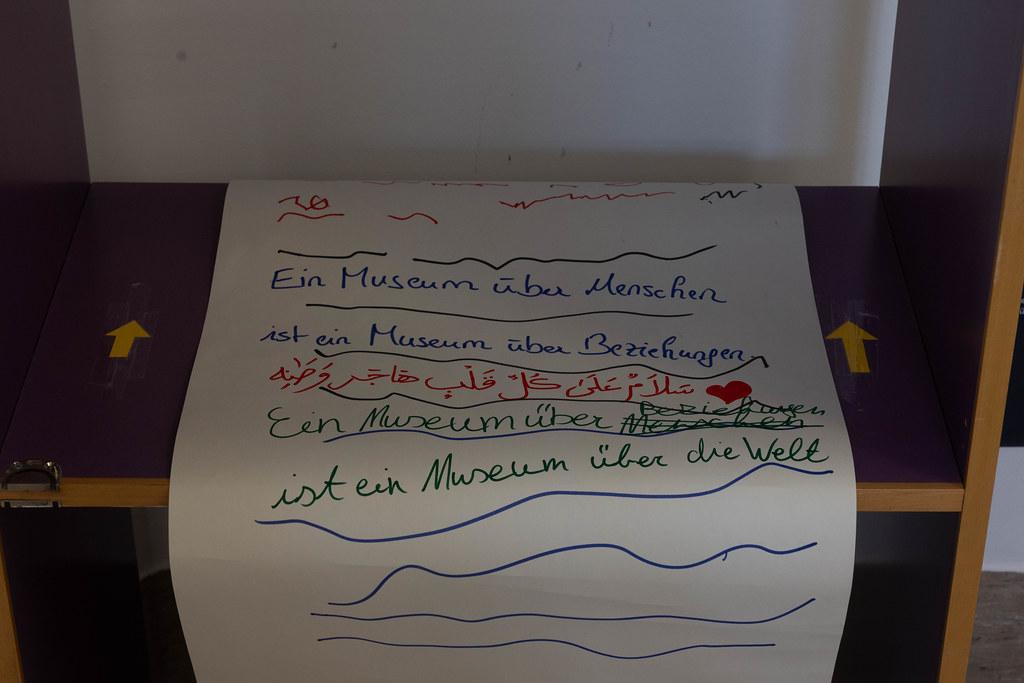 Ein Museum über Menschen
ist ein Museum über Beziehungen
سَلاَمٌ عَلَىٰ كَلِّ قَلْبٍ هَاجَر وَطَنِه
Ein Museum über Beziehungen
Menschen
ist ein Museum über die Welt